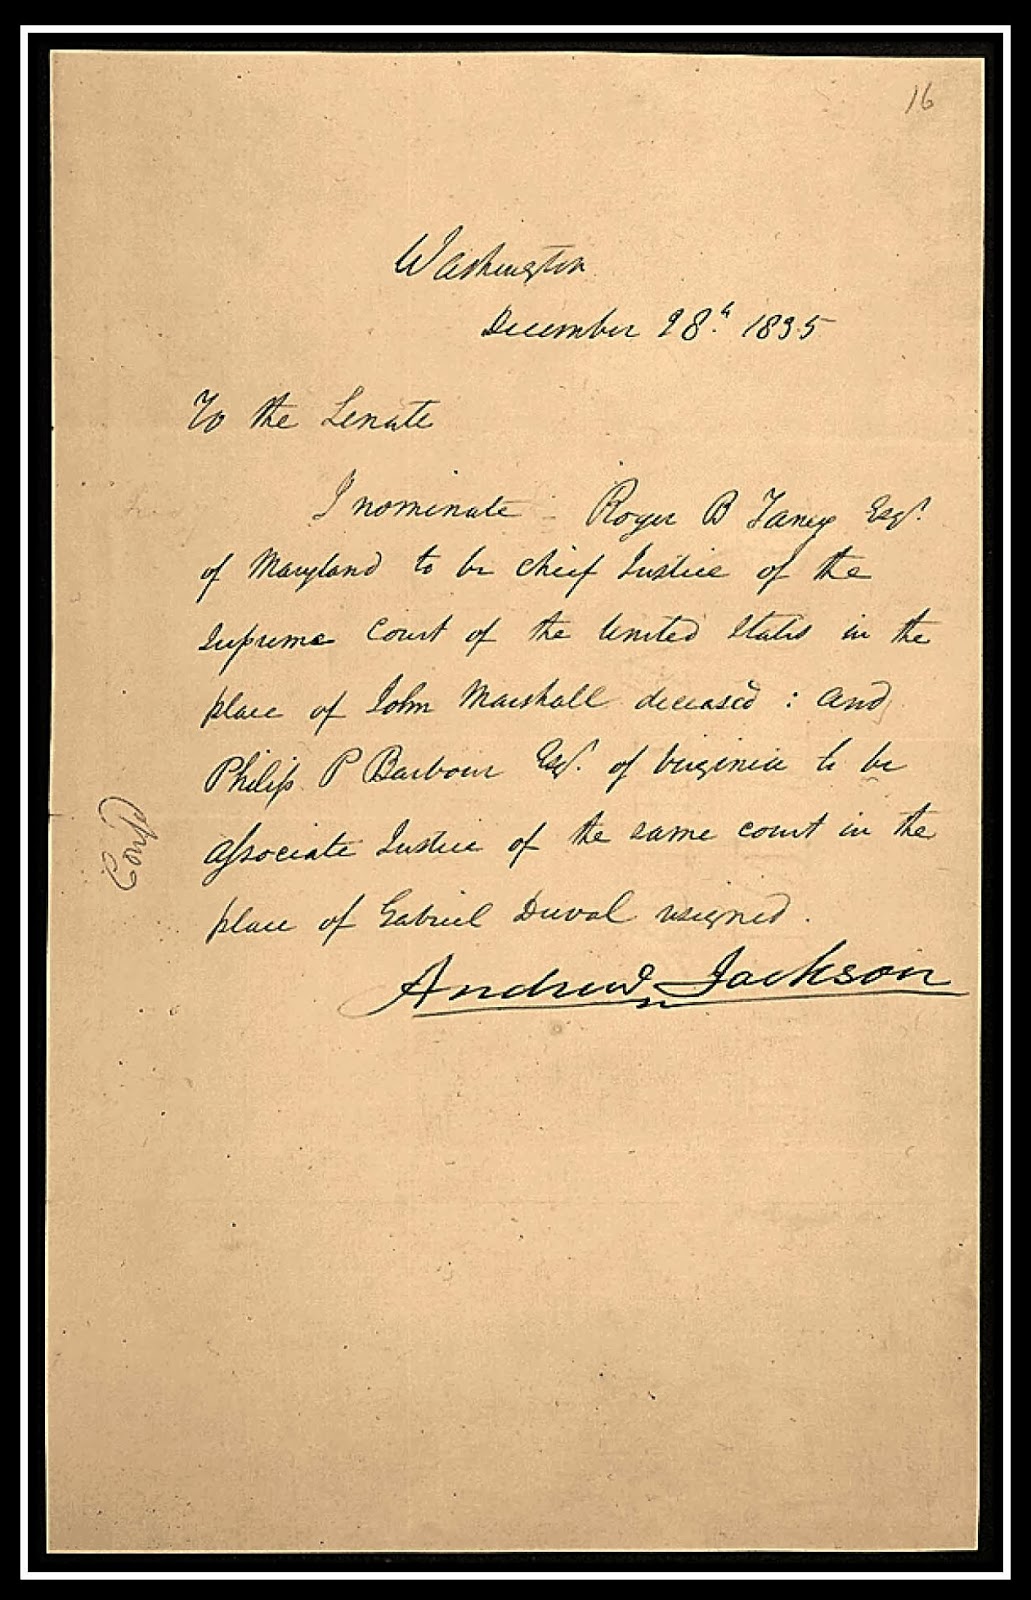 16
Washington
December 28.th 1835
To the Senate
I nominate Roger B Taney Esqr.
of Maryland to be chief Justice of the
Supreme Court of the United States in the
place of John Marshall deceased : and
Philip P Barbour Esqr. of Virginia to be
associate Justice of the same court in the
place of Gabriel Duval resigned.
Andrew Jackson